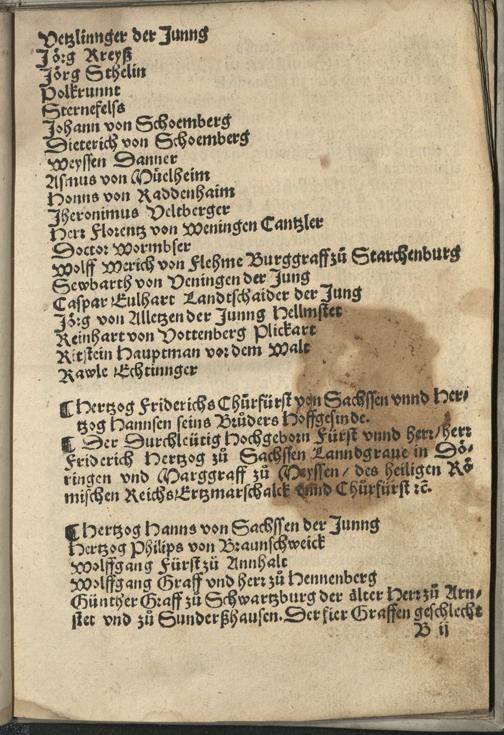 Vetzlinnger der Junng
Jörg Kreyß
Jörg Sthelin
Polkrunnt
Sternefelss
Johann von Schoemberg
Dieterich von Schoemberg
Weyssen Danner
Asmus von Müelheim
Honns von Raddenhaim
Jheronimus Veltberger
Herr Florentz von Weningen Cantzler
Doctor Wormbser
Wolff Werich von Flehme Burggraff zů Starchenburg
Sewbarth von Veningen der Jung
Caspar Eulhart Landtschaider der Jung
Jörg von Alletzen der Junng Hellmstet
Reinhart von Vottenberg Plickart
Ritstein Hauptman vor dem Walt
Rawle Echtinnger
¶ Hertzog Friderichs Chürfürst von Sachssen vnnd Her-
tzog Hannsen seins Brüders Hoffgesinde.
¶ Der Durchleütig Hochgeborn Fürst vnnd herr/ herr
Friderich Hertzog zů Sachssen Lanndgraue in Dö-
ringen vnd Marggraff zů Meyssen/ des heiligen Rö
mischen Reichs Ertzmarschalck vnnd Chürfürst ꝛc.
¶ Hertzog Hanns von Sachssen der Junng
Hertzog Philips von Braunschweick
Wolffgang Fürst zů Annhalt
Wolffgang Graff vnd herr zů Hennenberg
Günther Graff zů Schwartzburg der älter Herr zů Arn-
stet vnd zů Sunderßhausen. Der fier Graffen geschlecht
B ij